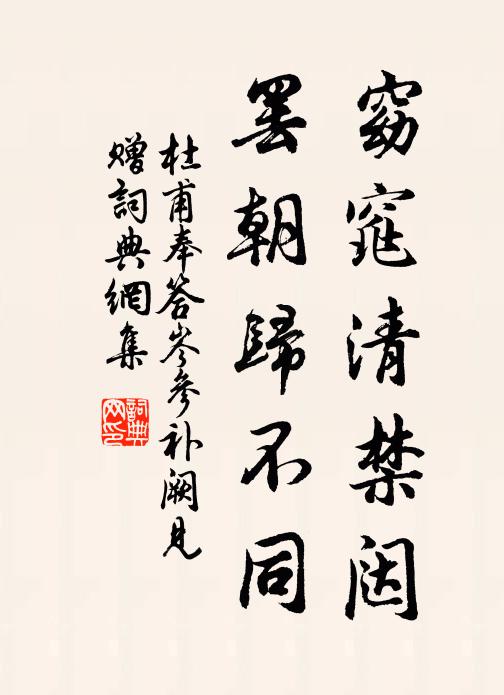 窈窕清禁闼
罢朝归不同
杜甫奉答岑參补阙见
赠詞典網集
詞典网印